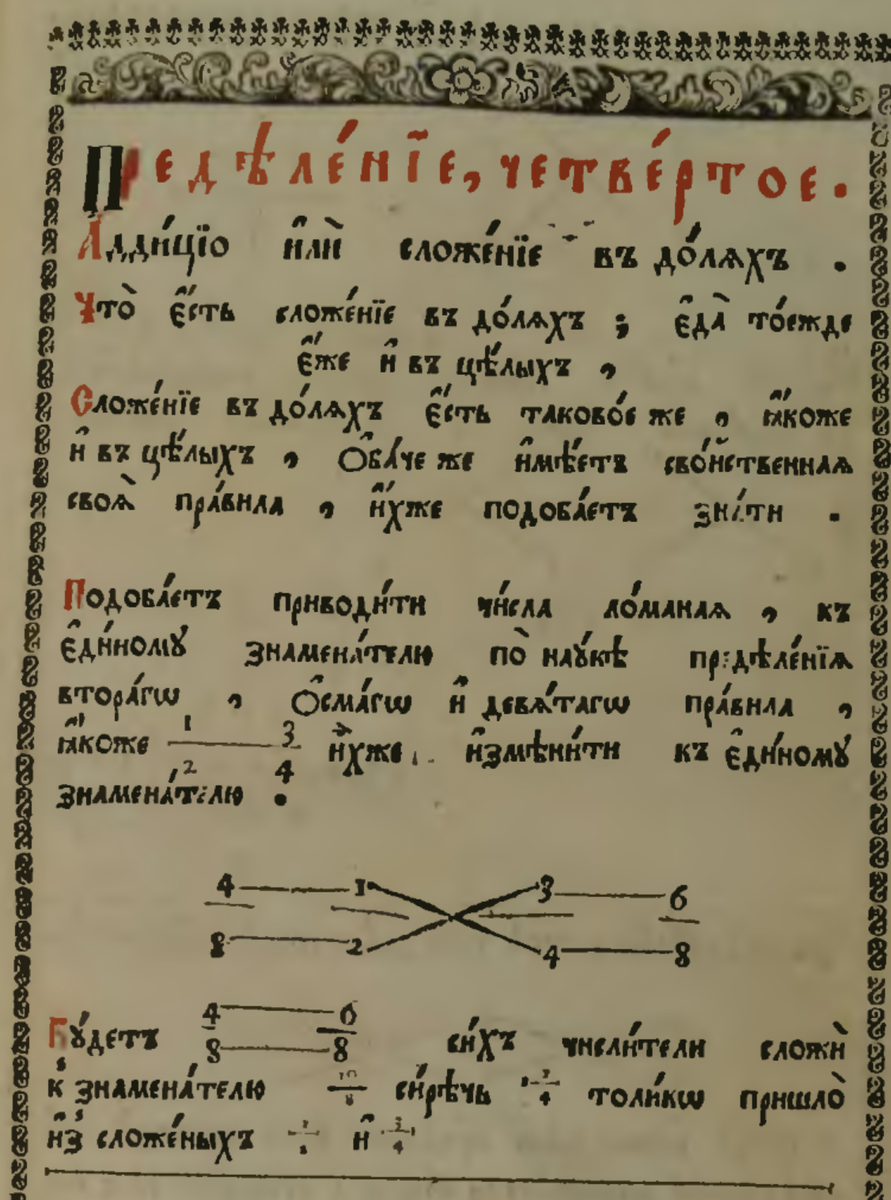 Предѣле́нїе, четве́ртое.
Адди́цїо и҆лѝ сложе́нїе въ до́лѧхъ .
Что̀ є҆́сть сложе́нїе въ до́лѧхъ ; є҆да̀ то́ежде
є҆́же и҆ въ цѣ́лыхъ ,
Сложе́нїе въ до́лѧхъ є҆́сть таково́е же , ꙗ҆́коже
и҆ въ цѣ́лыхъ , Ѻ҆ба́че же и҆мѣ́етъ сво́йственнаѧ
своѧ̀ пра́вила , и҆́хже подоба́етъ зна́ти .
Подоба́етъ приводи́ти чи́сла ло́манаѧ , къ
є҆ди́ному знамена́телю по̀ нау́кѣ предѣле́нїѧ
втора́гѡ , Ѻ҆сма́гѡ и҆ девѧ́тагѡ пра́вила ,
ꙗ҆́коже 1/2 3/4 и҆́хже и҆змѣни́ти къ є҆ди́ному
знамена́телю .
4 1 3 6
8 2 4 8
Бу́детъ 4/8 6/8 си́хъ числи́тели сложѝ
к̾ знамена́телю 10/8 си́рѣчь 1 1/4 толи́кѡ пришло̀
и҆з̾ сложе́ныхъ 1/2 и҆ 3/4